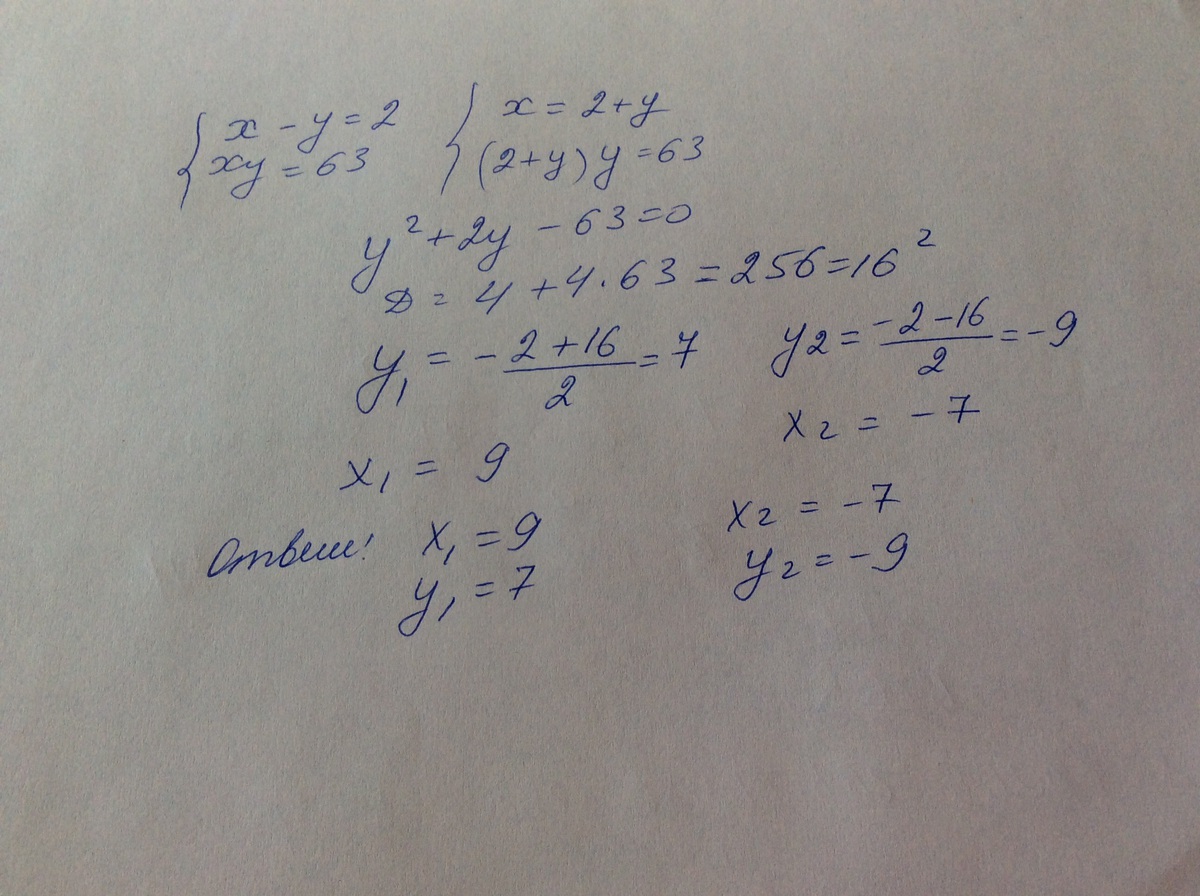 { x - y = 2 { x = 2 + y
xy = 63 (2 + y) y = 63
y² + 2y - 63 = 0
D = 4 + 4 · 63 = 256 = 16²
y₁ = -2 + 16 / 2 = 7 y₂ = -2 - 16 / 2 = -9
x₁ = 9 x₂ = -7
Ответ: x₁ = 9 x₂ = -7
y₁ = 7 y₂ = -9